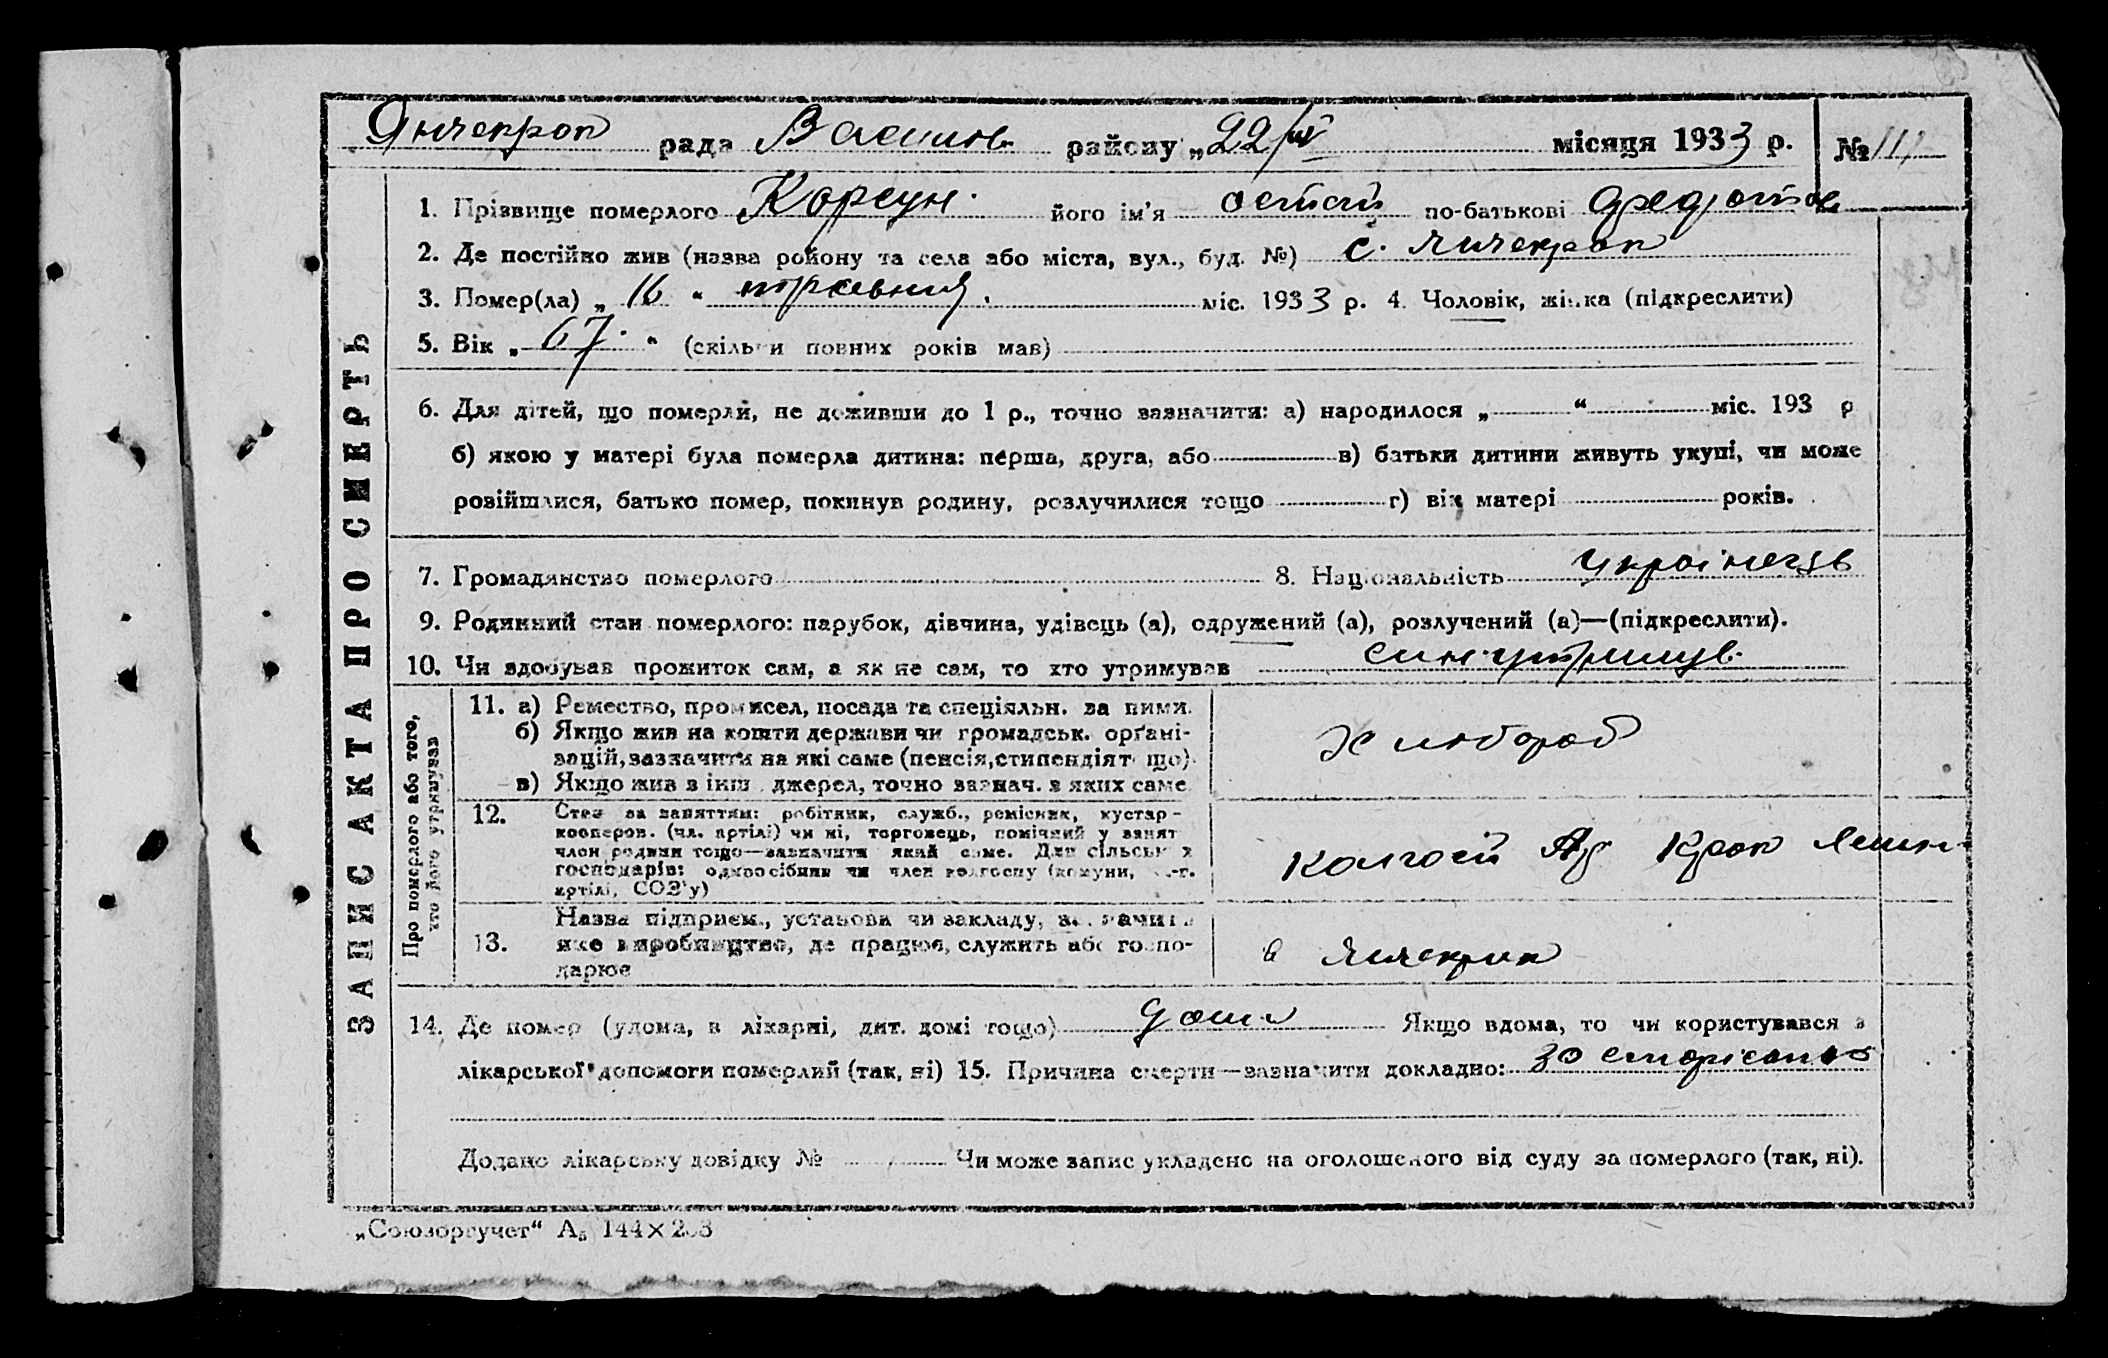 Янчекрак рада Васили районy „22/IV місяця 1933 р. № 111
1. Прізвище померлого Корсун його ім'я Остап по-батькові Федотов
2. Де постійно жив (назва району та села або міста, вул., буд. №) с. Янчекрак
3. Помер(ла) „ 16 “ травня міс. 1933 р. 4. Чоловік, жінка (підкреслити)
5. Вік „ 67 “ (скільки повних років мав)
6. Для дітей, що померли, не доживши до 1 р., точно зазначити: а) народилося „ “ міс. 193 р
б) якою у матері була померла дитина: перша, друга, або в) батьки дитини живуть укупі, чи може
розійшлися, батько помер, покинув родину, розлучилися тощо г) вік матері років.
7. Громадянство померлого 8. Національність Українець
9. Родинний стан померлого: парубок, дівчина, удівець (а), одружений (а), розлучений (а)—(підкреслити).
10. Чи здобував прожиток сам, а як не сам, то хто утримував син утримув
ЗАПИС АКТА ПРО СМЕРТЬ
Про померлого або того, хто його утримував
11. а) Ремество, промисел, посада та спеціяльн. за ними.
б) Якщо жив на кошти держави чи громадськ. орґані-
зацій, зазначити на які саме (пенсія, стипендія т що)
в) Якщо жив з інш. джерел, точно зазнач. з яких саме
Хлібороб
12. Стан за заняттям: робітник, служб., ремісник, кустар-
кооперов. (чл. артілі) чи ні, торговець, помічний у занят
член родини тощо—зазначити який саме. Для сільськ х
господарів: одноосібник чи член колгоспу (комуни, с.-г.
артілі, СОЗ'у)
колгосп
13. Назва підприєм., установи чи закладу, зазначити
яке виробництво, де працює, служить або госпо-
дарює
в Янчекрак
14. Де помер (удома, в лікарні, дит. домі тощо) дома Якщо вдома, то чи користувався з
лікарської допомоги померлий (так, ні) 15. Причина смерти—зазначити докладно: зо старість
Додано лікарську довідку № Чи може запис укладено на оголошеного від суду за померлого (так, ні).
„Союзоргучет“ А₅ 144×203